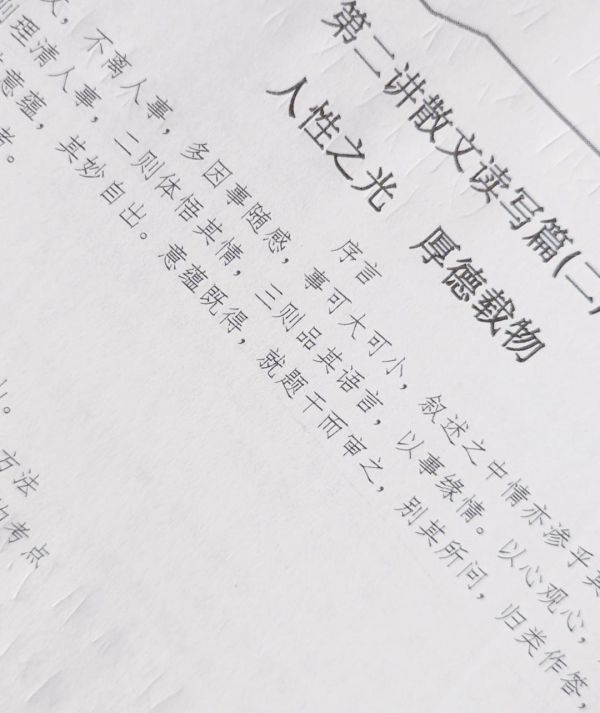 第二讲散文读写篇(二
人性之光 厚德载物
序言
,不离人事,多因事随感,事可大可小,叙述之中情亦渗乎
则理清人事,二则体悟其情,三则品其语言,以事缘情。以心观心,
意蕴,其妙自出。意蕴既得,就题干而审之,别其所问,归类作答,
者。
方法
考点